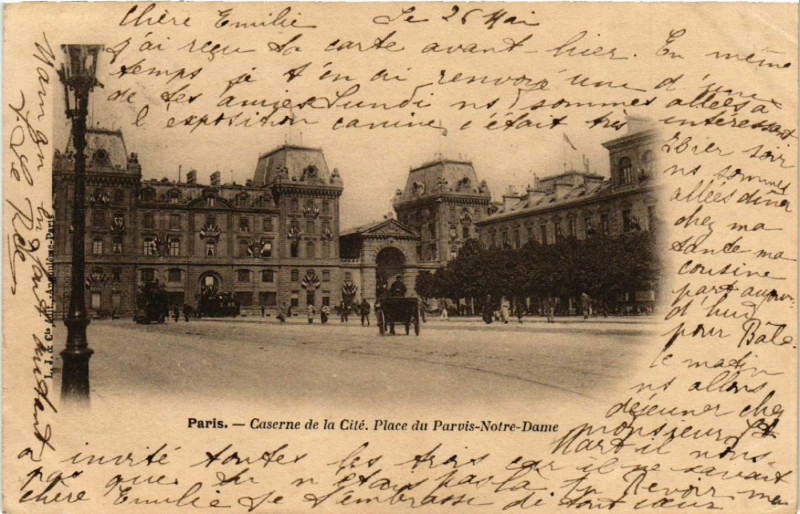 Chère Emilie Le 26 Mai
j'ai reçu ta carte avant-hier. En même
temps je t'en ai renvoyé une d'une
de tes amies Lundi ns sommes allées à
l'exposition canine, c'était très intéressant
Hier soir
ns sommes
allées dîner
chez ma
tante ma
cousine
part aujour-
d'hui
pour Bâle.
le matin
ns allons
déjeuner chez
Mart il nous
a invité toutes les trois car il ne savait
pas que tu n'étais pas là. Au Revoir ma
chère Emilie je t'embrasse de tout cœur
Paris. — Caserne de la Cité. Place du Parvis-Notre-Dame
L. J. & Cie édit. Angoulême-Paris